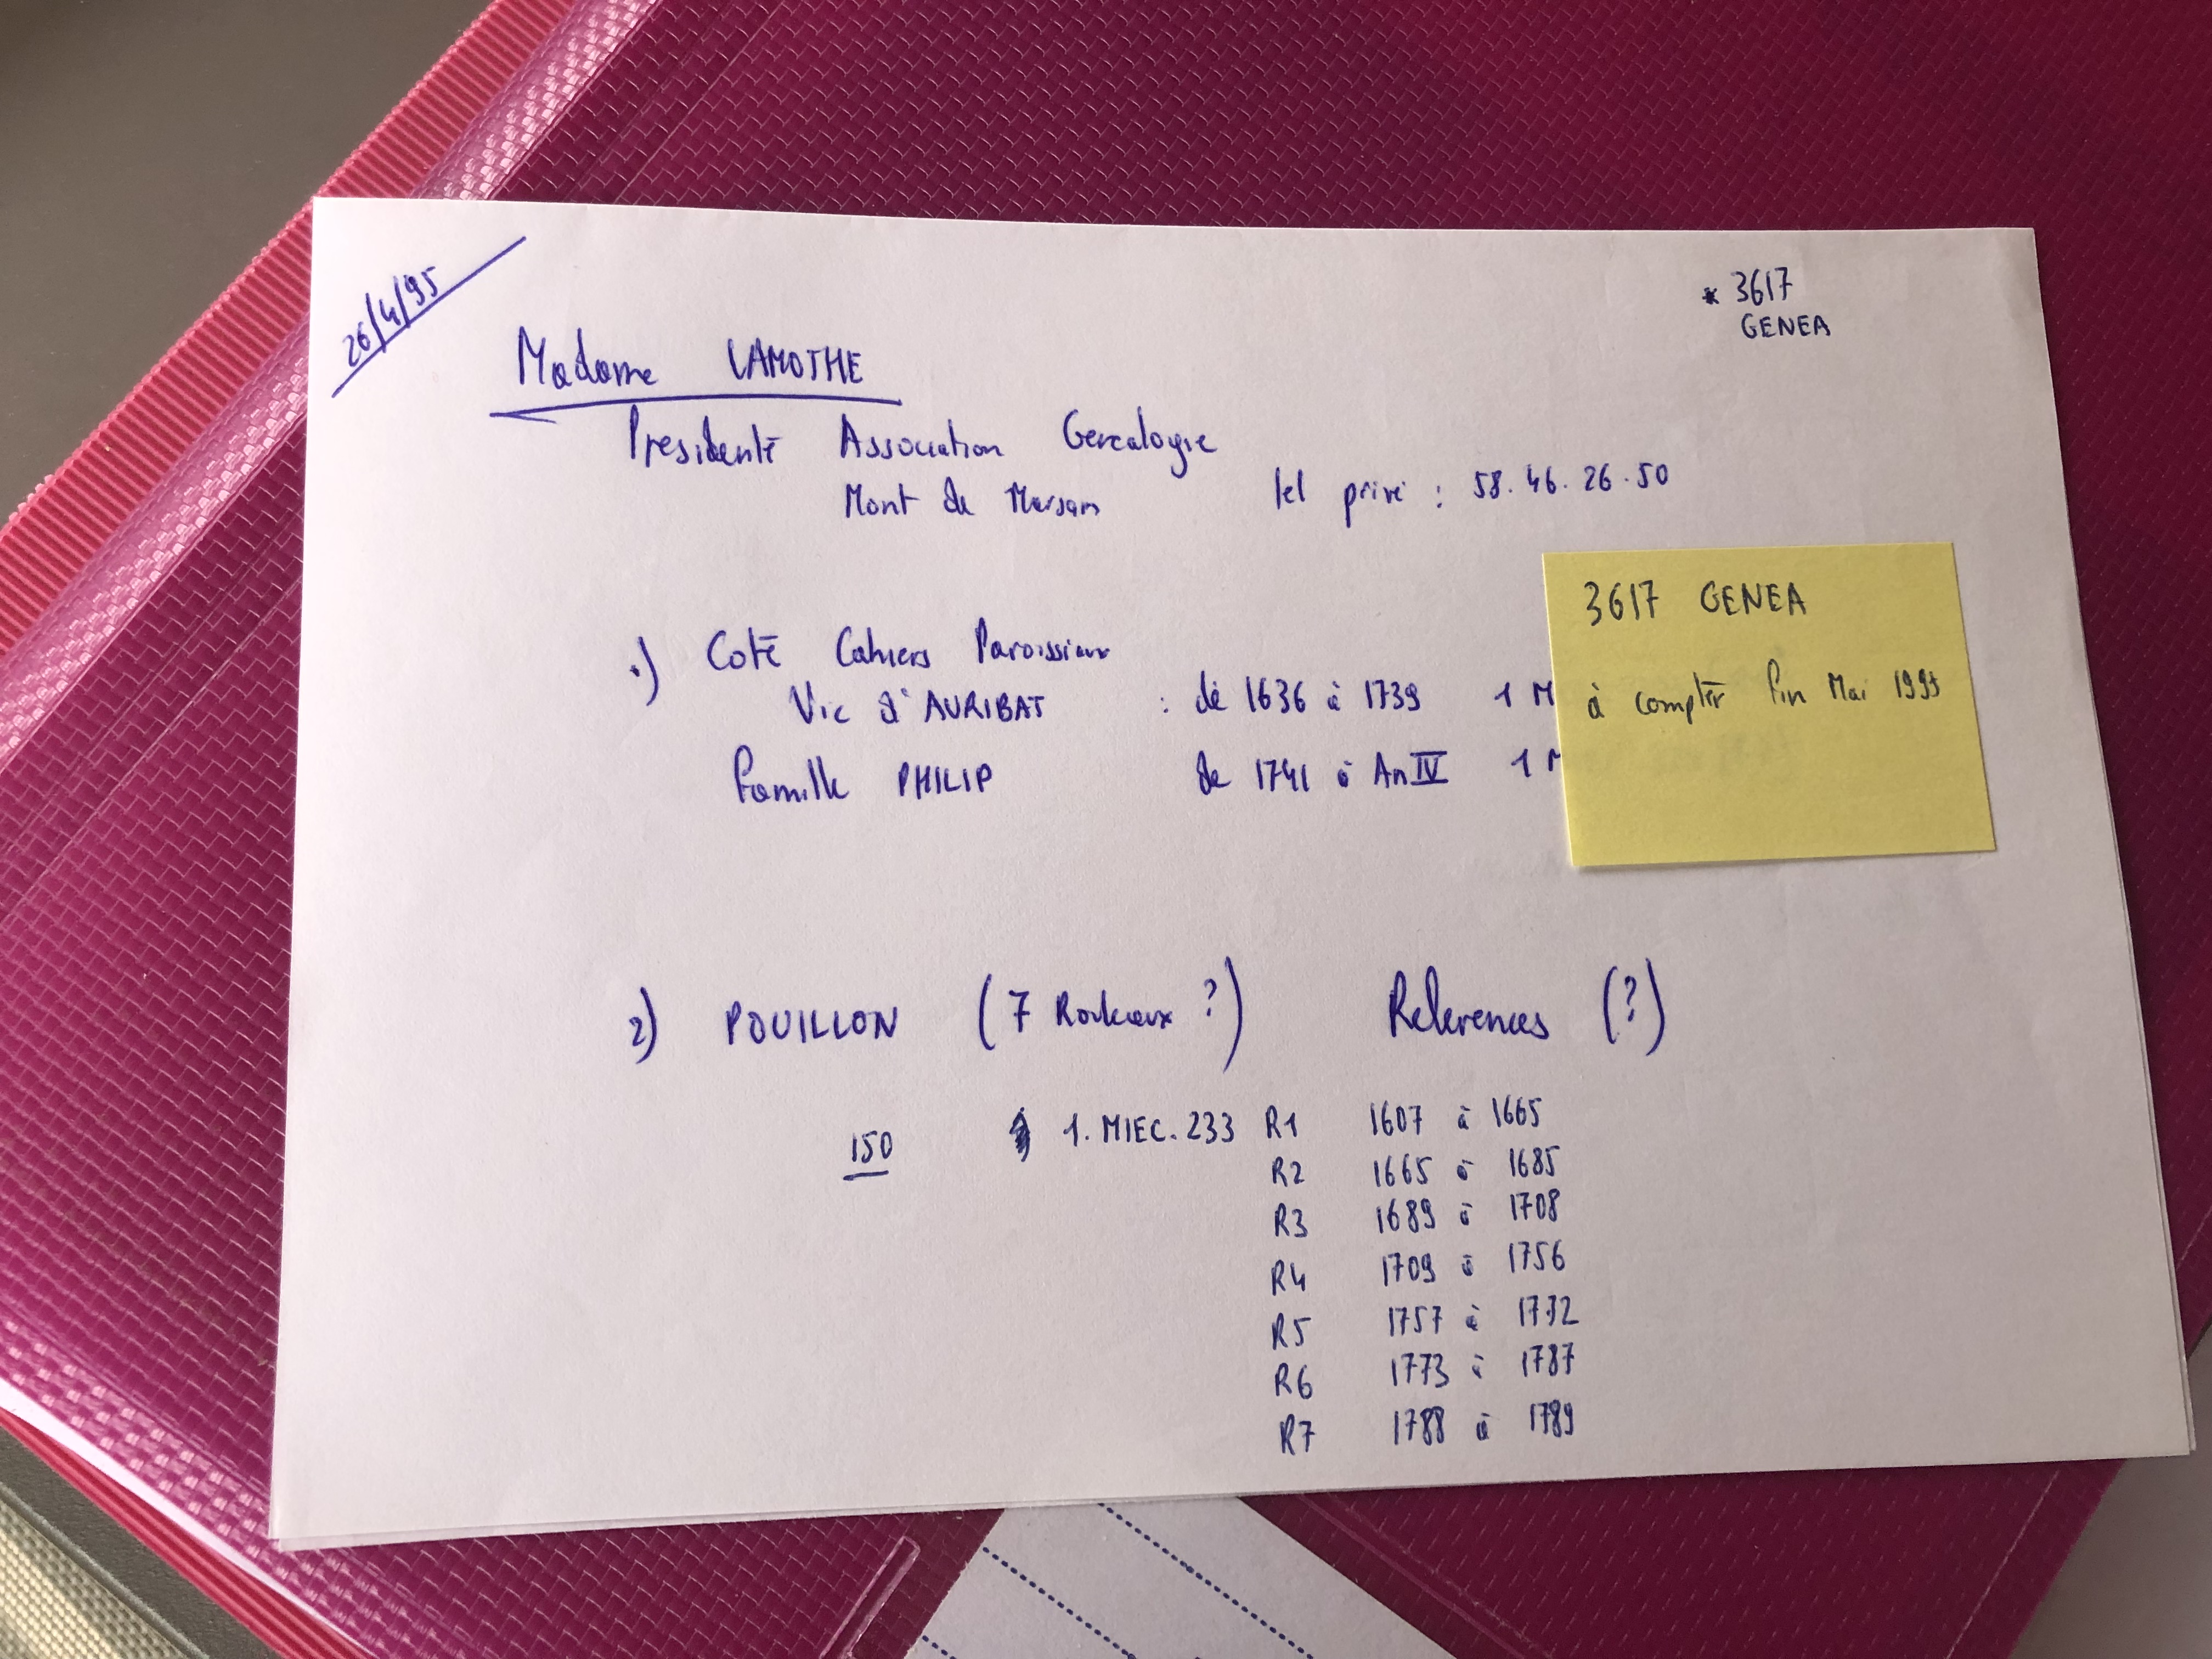 26/4/95
* 3617
GENEA
Madame LAMOTHE
Presidente Association Genealogie
Mont de Marsan tel privé : 58.46.26.50
1) Coté Cahiers Paroissiaux
Vic d'AURIBAT : de 1636 à 1739 1 M
Famille PHILIP de 1741 à An IV 1 M
3617 GENEA
à compter fin Mai 1995
2) POUILLON (7 Rouleaux ?) References (?)
150 1. MIEC. 233 R1 1607 à 1665
R2 1665 à 1685
R3 1689 à 1708
R4 1709 à 1756
R5 1757 à 1772
R6 1773 à 1787
R7 1788 à 1789